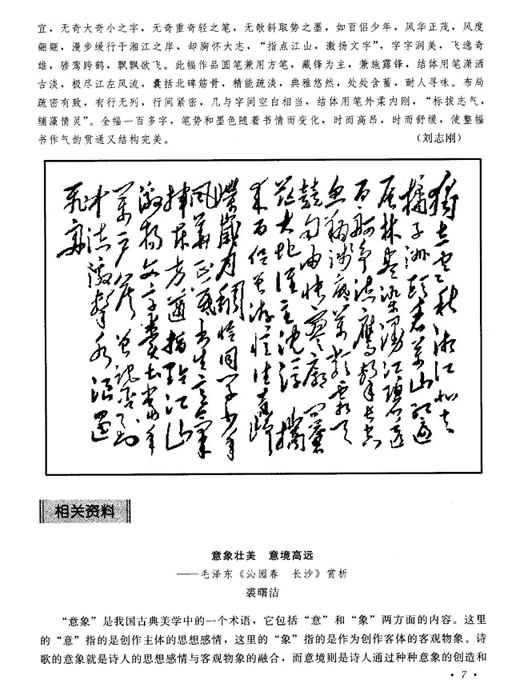 宜，无奇大奇小之字，无奇重奇轻之笔，无欹斜取势之墨，如百侣少年，风华正茂，风度
翩翩，漫步缓行于湘江之岸，却胸怀大志，“指点江山，激扬文字”，字字润美，飞逸奇
雄，骖鸾跨鹤，飘飘欲飞。此幅作品圆笔兼用方笔，藏锋为主，兼施露锋，结体用笔潇洒
古淡，极尽江左风流，囊括北碑筋骨，精能疏淡，典雅悠然，处处含蓄，耐人寻味。布局
疏密有致，有行无列，行间紧密，几与字间空白相当，结体用笔外柔内刚，“标拔志气，
黼藻情灵”。全幅一百多字，笔势和墨色随着书情而变化，时而高昂，时而舒缓，使整幅
书作气韵贯通又结构完美。
（刘志刚）
独立寒秋湘江北去
橘子洲头看万山红遍
层林尽染漫江碧透
百舸争流鹰击长空
鱼翔浅底万类霜天
竞自由怅寥廓问苍
茫大地谁主沉浮携
来百侣曾游忆往昔峥
嵘岁月稠恰同学少年
风华正茂书生意气
挥斥方遒指点江山
激扬文字粪土当年
万户侯曾记否到
中流击水浪遏
飞舟
相关资料
意象壮美　意境高远
——毛泽东《沁园春　长沙》赏析
裘曙洁
“意象”是我国古典美学中的一个术语，它包括“意”和“象”两方面的内容。这里
的“意”指的是创作主体的思想感情，这里的“象”指的是作为创作客体的客观物象。诗
歌的意象就是诗人的思想感情与客观物象的融合，而意境则是诗人通过种种意象的创造和
· 7 ·